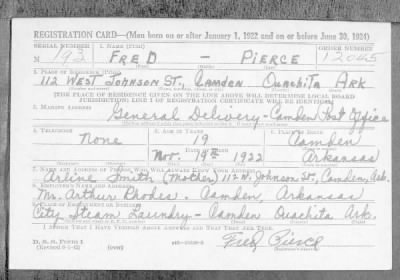 REGISTRATION CARD—(Men born on or after January 1, 1922 and on or before June 30, 1924)
SERIAL NUMBER 1. NAME (Print) ORDER NUMBER
N 192 FRED — PIERCE 12045
2. PLACE OF RESIDENCE (Print)
112 WEST JOHNSON ST., CAMDEN OUACHITA ARK
[THE PLACE OF RESIDENCE GIVEN ON THE LINE ABOVE WILL DETERMINE LOCAL BOARD
JURISDICTION; LINE 2 OF REGISTRATION CERTIFICATE WILL BE IDENTICAL]
3. MAILING ADDRESS
General Delivery - Camden Post Office
4. TELEPHONE 5. AGE IN YEARS 6. PLACE OF BIRTH
None 19 Camden
Nov. 19th 1922 Arkansas
7. NAME AND ADDRESS OF PERSON WHO WILL ALWAYS KNOW YOUR ADDRESS
Arline Smith (Mother) 112 W. Johnson St., Camden, Ark.
8. EMPLOYER'S NAME AND ADDRESS
Mr. Arthur Rhodes. Camden, Arkansas
9. PLACE OF EMPLOYMENT OR BUSINESS
City Steam Laundry - Camden Ouachita Ark.
I AFFIRM THAT I HAVE VERIFIED ABOVE ANSWERS AND THAT THEY ARE TRUE.
D. S. S. Form 1
Fred Pierce